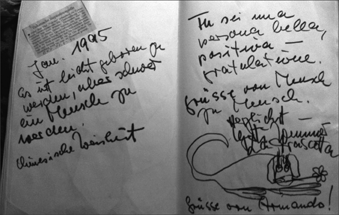 Jan. 1995
es ist leicht geboren zu
werden, aber schwer
ein Mensch zu
werden.
chinesische Weisheit
Tu sei una
persona bella,
positiva –
gratulazione.
Grüsse von Mensch
zu Mensch.
Grüsse von Armando!